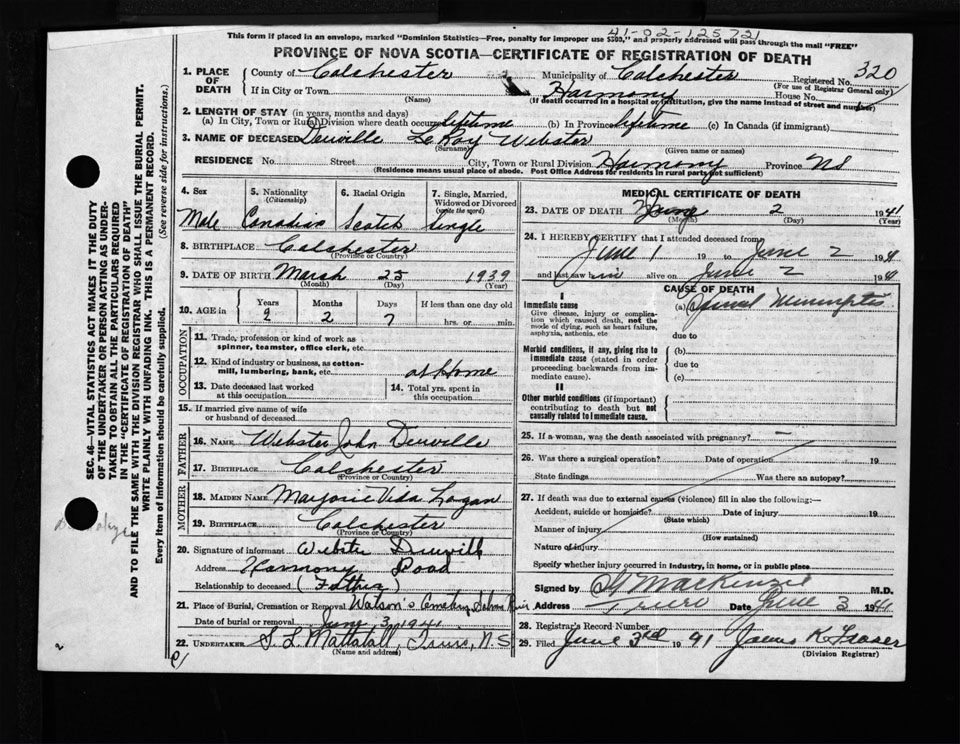 This form if placed in an envelope, marked "Dominion Statistics—Free, penalty for improper use $300," and properly addressed will pass through the mail "FREE"
41-02-125721
PROVINCE OF NOVA SCOTIA—CERTIFICATE OF REGISTRATION OF DEATH
1. PLACE OF DEATH
County of Colchester
Municipality of Colchester
Registered No. 320
(For use of Registrar General only)
If in City or Town
(Name)
Harmony
House No.
(If death occurred in a hospital or institution, give the name instead of street and number)
2. LENGTH OF STAY (in years, months and days)
(a) In City, Town or Rural Division where death occurred lifetime (b) In Province lifetime (c) In Canada (if immigrant)
3. NAME OF DECEASED Deuville LeRoy Webster
(Surname) (Given name or names)
RESIDENCE No. Street City, Town or Rural Division Harmony Province NS
(Residence means usual place of abode. Post Office Address for residents in rural parts not sufficient)
4. Sex
Male
5. Nationality
(Citizenship)
Canadian
6. Racial Origin
Scotch
7. Single, Married, Widowed or Divorced
(write the word)
Single
8. BIRTHPLACE Colchester
(Province or Country)
9. DATE OF BIRTH March 25 1939
(Month) (Day) (Year)
10. AGE in
Years Months Days If less than one day old
2 2 7 hrs. or min.
OCCUPATION
11. Trade, profession or kind of work as
spinner, teamster, office clerk, etc.
12. Kind of industry or business, as cotton-
mill, lumbering, bank, etc. at Home
13. Date deceased last worked
at this occupation
14. Total yrs. spent in
this occupation
15. If married give name of wife
or husband of deceased
FATHER
16. NAME Webster John Deuville
17. BIRTHPLACE Colchester
(Province or Country)
MOTHER
18. MAIDEN NAME Marjorie Vida Logan
19. BIRTHPLACE Colchester
(Province or Country)
20. Signature of informant Webster Deuville
Address Harmony Road
Relationship to deceased (Father)
21. Place of Burial, Cremation or Removal Watson's Cemetery Salmon River
Date of burial or removal June 3, 1941
22. UNDERTAKER S L Mattatall, Truro, N.S
(Name and address)
MEDICAL CERTIFICATE OF DEATH
23. DATE OF DEATH June 2 1941
(Month) (Day) (Year)
24. I HEREBY CERTIFY that I attended deceased from
June 1 19 to June 2 1941
and last saw him alive on June 2 1941
CAUSE OF DEATH
I
Immediate cause
Give disease, injury or complication which caused death, not the mode of dying, such as heart failure, asphyxia, asthenia, etc
(a) Spinal Meningitis
due to
Morbid conditions, if any, giving rise to immediate cause (stated in order proceeding backwards from immediate cause).
(b)
due to
(c)
II
Other morbid conditions (if important) contributing to death but not causally related to immediate cause.
25. If a woman, was the death associated with pregnancy? –
26. Was there a surgical operation? Date of operation 19
State findings Was there an autopsy?
27. If death was due to external causes (violence) fill in also the following:—
Accident, suicide or homicide? Date of injury 19
(State which)
Manner of injury
(How sustained)
Nature of injury
Specify whether injury occurred in industry, in home, or in public place
Signed by MacKenzie M.D.
Address Truro Date June 3 1941
28. Registrar's Record Number
29. Filed June 3rd 1941 James K Fraser
(Division Registrar)
SEC. 46—VITAL STATISTICS ACT MAKES IT THE DUTY
OF THE UNDERTAKER OR PERSON ACTING AS UNDER-
TAKER TO OBTAIN ALL THE PARTICULARS REQUIRED
IN THE "CERTIFICATE OF REGISTRATION OF DEATH"
AND TO FILE THE SAME WITH THE DIVISION REGISTRAR WHO SHALL ISSUE THE BURIAL PERMIT.
WRITE PLAINLY WITH UNFADING INK. THIS IS A PERMANENT RECORD.
Every item of Information should be carefully supplied. (See reverse side for instructions.)